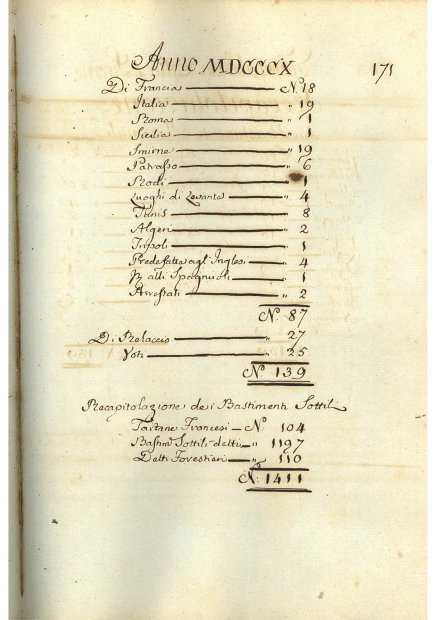 Anno MDCCCX
171
Di Francia — N. 18
Italia — " 19
Roma — " 1
Sicilia — " 1
Smirne — " 19
Patrasso — " 6
Rodi — " 1
Luoghi di Levante — " 4
Tunis — " 8
Algeri — " 2
Tripoli — " 1
Prede fatte agl' Inglesi — " 4
alli Spagnuoli — " 1
Arrestati — " 2
N. 87
Di Relaccio — " 27
Voti — " 25
N. 139
Recapitolazione dei Bastimenti Sottili
Tartane Francesi — N. 104
Bastim.ti Sottili detti — " 1197
Detti Forestieri — " 110
N. 1411